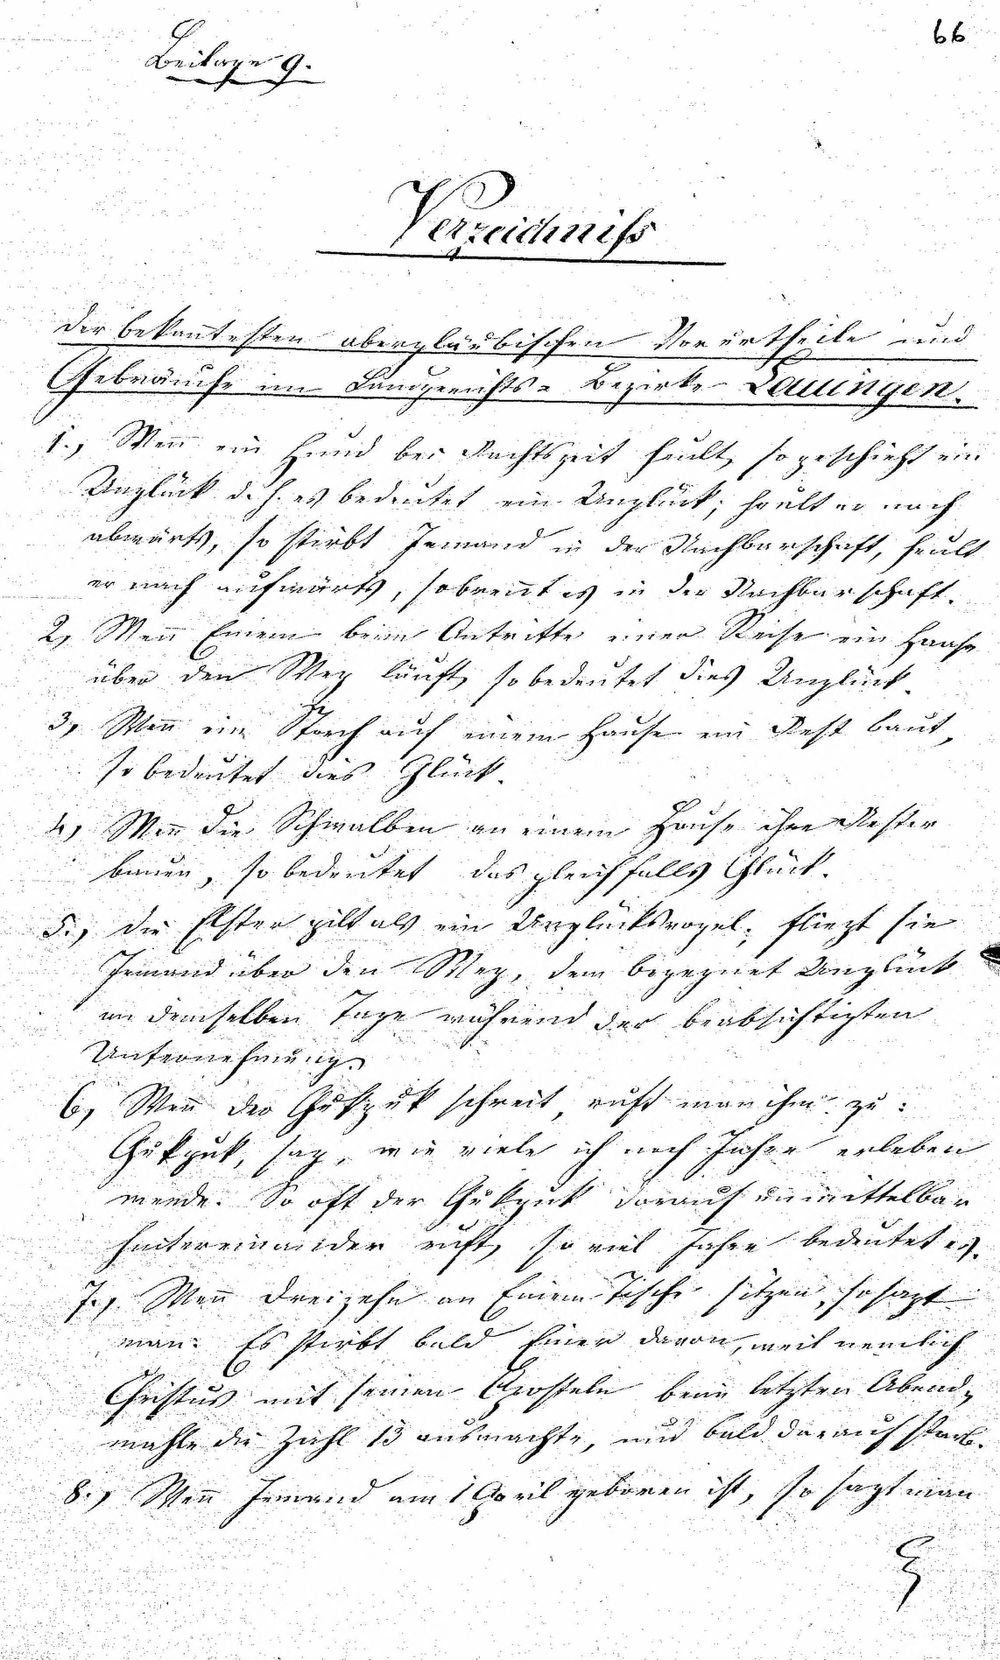 66
Beilage 9.
Verzeichniß
der bekanntesten abergläubischen Vorurtheile und
Gebräuche im Landgerichts-Bezirke Lauingen.
1., Wenn ein Hund bei Nachtszeit heult, so geschieht ein
Unglück d. h. es bedeutet ein Unglück; heult er nach
abwärts, so stirbt Jemand in der Nachbarschaft, heult
er nach aufwärts, so brennt es in der Nachbarschaft.
2, Wenn Einem beim Antritte einer Reise ein Haase
über den Weg läuft, so bedeutet dies Unglück.
3, Wenn ein Storch auf einem Hause ein Nest baut,
so bedeutet dies Glück.
4, Wenn die Schwalben an einem Hause ihre Nester
bauen, so bedeutet das gleichfalls Glück.
5., die Elster gilt als ein Unglücksvogel; fliegt sie
Jemand über den Weg, dem begegnet Unglück
an demselben Tage während der beabsichtigten
Unternehmung.
6, Wenn der Gukguk schreit, ruft man ihm zu:
Gukguk, sag, wie viele ich noch Jahre erleben
werde. So oft der Gukguk darauf unmittelbar
hintereinander ruft, so viel Jahre bedeutet es.
7., Wenn dreizehn an Einem Tische sitzen, so sagt
man: Es stirbt bald Einer davon, weil nemlich
Christus mit seinen Aposteln beim letzten Abend-
mahle die Zahl 13 ausmachte, und bald darauf starb.
8., Wenn Jemand am 1 April geboren ist, so sagt man